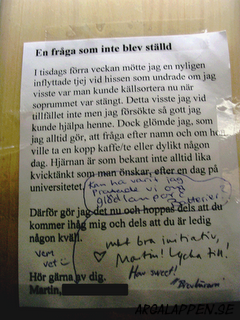 En fråga som inte blev ställd
I tisdags förra veckan mötte jag en nyligen
inflyttade tjej vid hissen som undrade om jag
visste var man kunde källsortera nu när
soprummet var stängt. Detta visste jag vid
tillfället inte men jag försökte så gott jag
kunde hjälpa henne. Dock glömde jag, som
jag alltid gör, att fråga efter namn och om hon
ville ta en kopp kaffe/te eller dylikt någon
dag. Hjärnan är som bekant inte alltid lika
kvicktänkt som man önskar, efter en dag på
universitetet.
Kan ha varit jag
pratade vi om
glödlampor
batterier?
Därför gör jag det nu och hoppas dels att du
kommer ihåg mig och dels att du är ledig
någon kväll.
Vem
vet
Mkt bra initiativ,
Martin! Lycka till!
How sweet!
Hör gärna av dig.
Martin,
ARGALAPPEN.SE